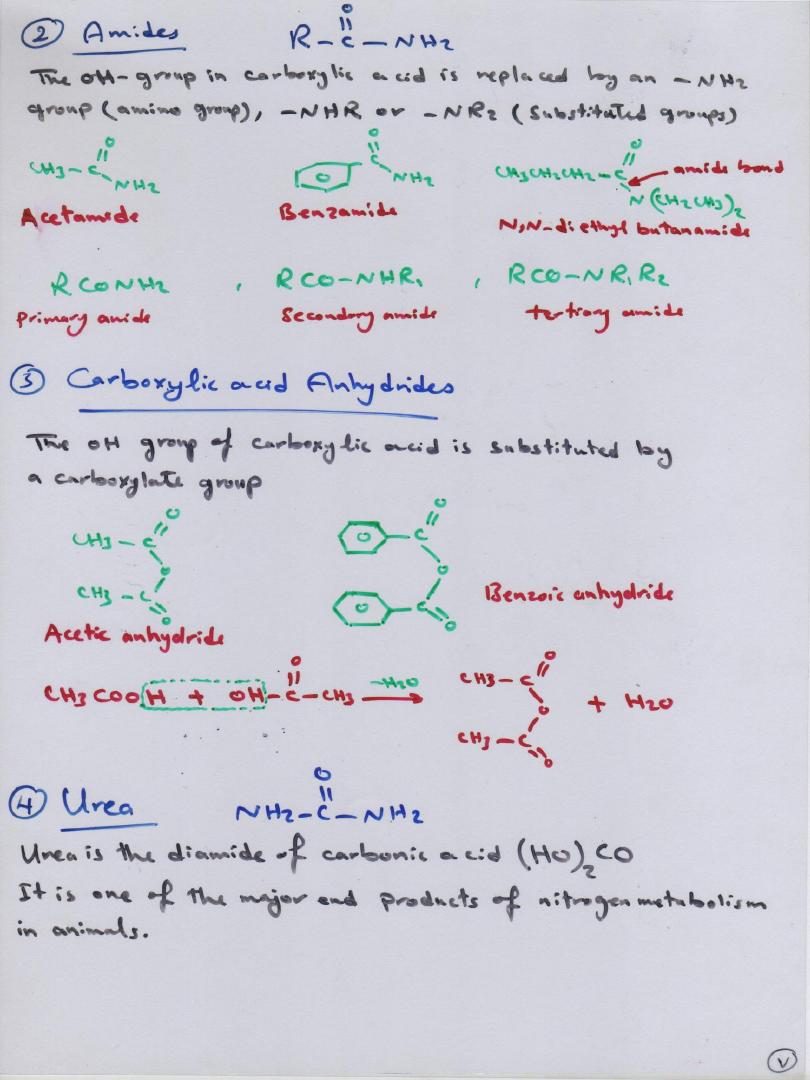 ② Amides R-C(=O)-NH2
The OH-group in carboxylic acid is replaced by an -NH2
group (amino group), -NHR or -NR2 (substituted groups)
CH3-C(=O)-NH2 C(=O)-NH2 CH3CH2CH2-C(=O)-N(CH2CH3)2 amide bond
Acetamide Benzamide N,N-diethyl butanamide
RCONH2 , RCO-NHR1 , RCO-NR1R2
primary amide Secondary amide tertiary amide
③ Carboxylic acid Anhydrides
The OH group of carboxylic acid is substituted by
a carboxylate group
CH3-C(=O)-O-C(=O)-CH3 C(=O)-O-C(=O)
Acetic anhydride Benzoic anhydride
CH3COOH + OH-C(=O)-CH3 -H2O CH3-C(=O)-O-C(=O)-CH3 + H2O
④ Urea NH2-C(=O)-NH2
Urea is the diamide of carbonic acid (HO)2CO
It is one of the major end products of nitrogen metabolism
in animals.
V